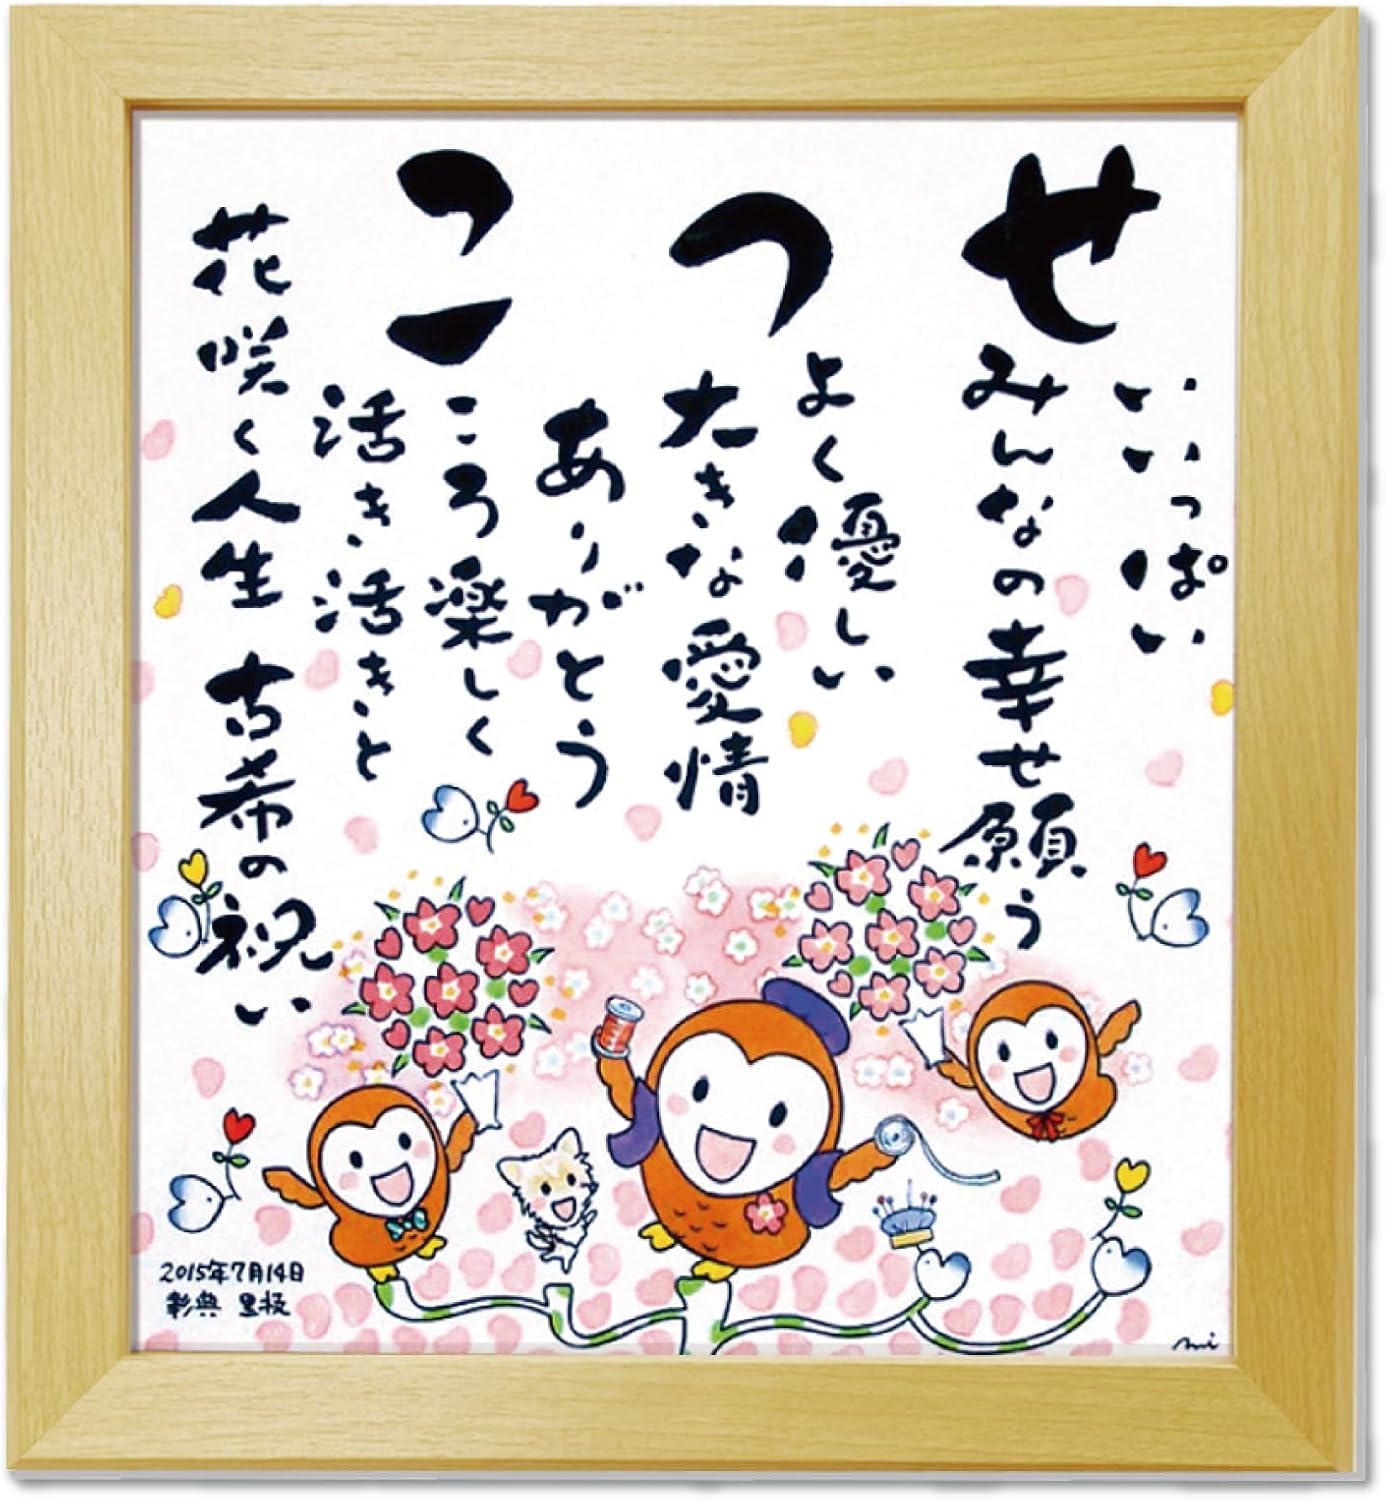 せ
いいっぱい
みんなの幸せ願う
つ
よく優しい
大きな愛情
ありがとう
こ
ころ楽しく
活き活きと
花咲く人生 古希の祝い
2015年7月14日
彰典
mi